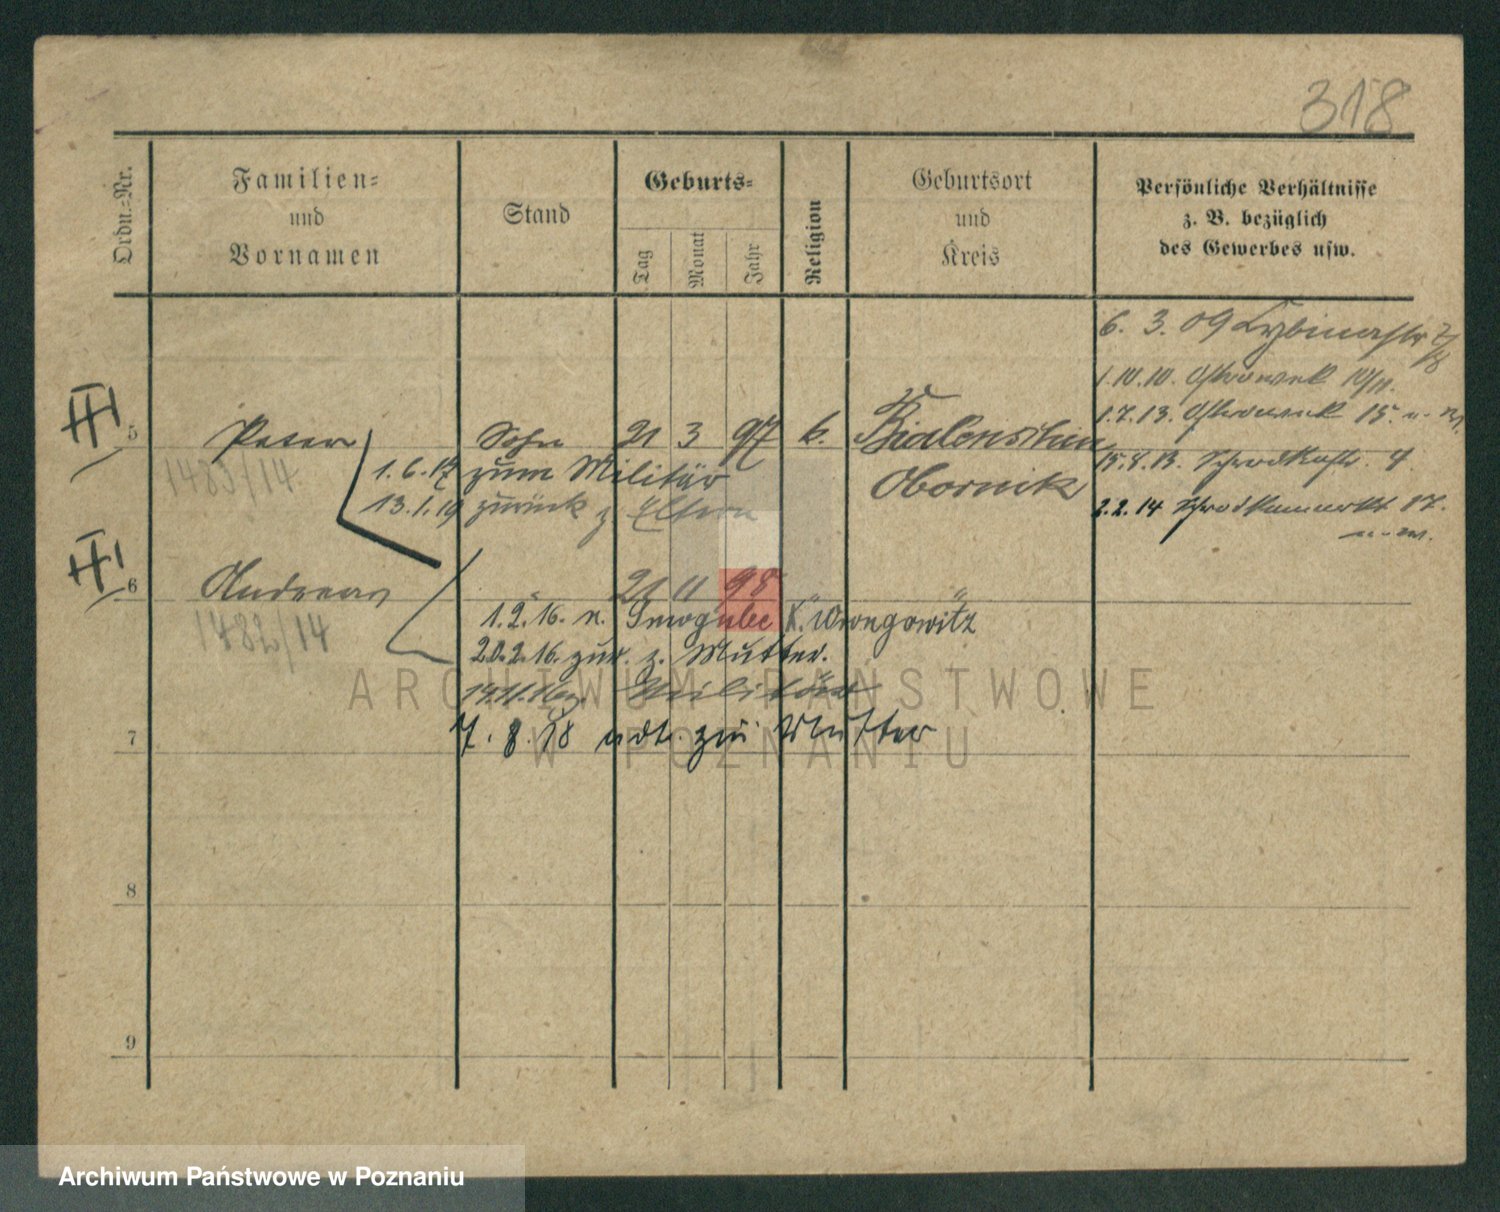 318
Ordn.-Nr.
Familien-
und
Vornamen
Stand
Geburts-
Tag
Monat
Jahr
Religion
Geburtsort
und
Kreis
Persönliche Verhältnisse
z. B. bezüglich
des Gewerbes usw.
6. 3. 09
1.10.10. Ostrowek 10/11.
1.7.13. Ostrowek 15.
15.8.13. Schrodkastr. 4.
2.2.14 Schrodkamarkt 17.
III
5
Peter
Sohn
21 3 97
k.
Obornik
1483/14
1.6.17 zum Militär
13.1.19 zurück z. Eltern
III
6
Andreas
21 11 98
1482/14
1.2.16. n. K. Wongrowitz
20.2.16. zur. z. Mutter.
Militär
7
7. 8. 18 zur Mutter
8
9
ARCHIWUM PAŃSTWOWE
W POZNANIU
Archiwum Państwowe w Poznaniu